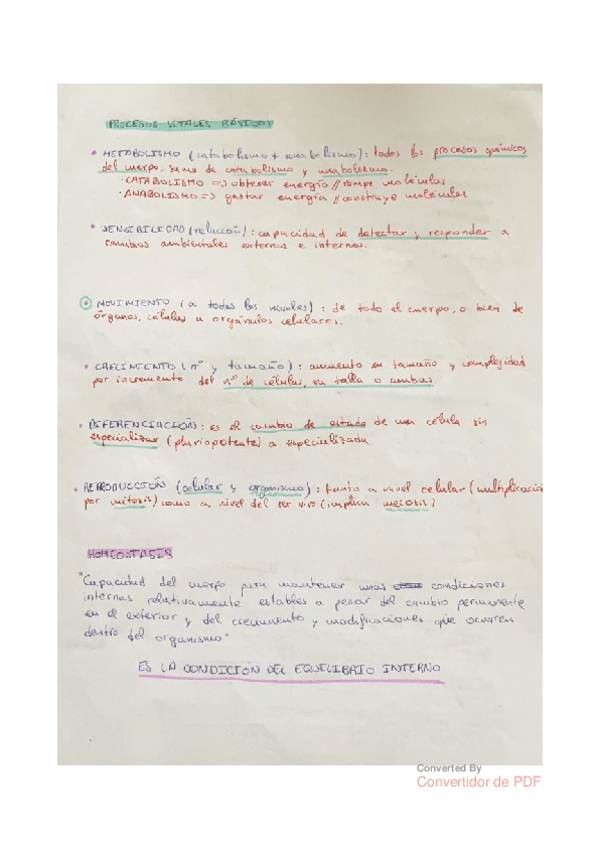 PROCESOS VITALES BÁSICOS
• METABOLISMO (catabolismo + anabolismo): todos los procesos químicos
del cuerpo, suma de catabolismo y anabolismo.
· CATABOLISMO => obtener energía // rompe moléculas
· ANABOLISMO => gastar energía // construye moléculas
• SENSIBILIDAD (relación): capacidad de detectar y responder a
cambios ambientales externos e internos.
• MOVIMIENTO (a todos los niveles): de todo el cuerpo, o bien de
órganos, células u orgánulos celulares.
• CRECIMIENTO (nº y tamaño): aumento en tamaño y complejidad
por incremento del nº de células, su talla o ambas
• DIFERENCIACIÓN: es el cambio de estado de una célula sin
especializar (pluripotente) a especializada
• REPRODUCCIÓN (celular y organismo): tanto a nivel celular (multiplicación
por mitosis) como a nivel del ser vivo (implica meiosis)
HOMEOSTASIS
"Capacidad del cuerpo para mantener unas condiciones
internas relativamente estables a pesar del cambio permanente
en el exterior y del crecimiento y modificaciones que ocurren
dentro del organismo"
ES LA CONDICIÓN DEL EQUILIBRIO INTERNO
Converted By
Convertidor de PDF